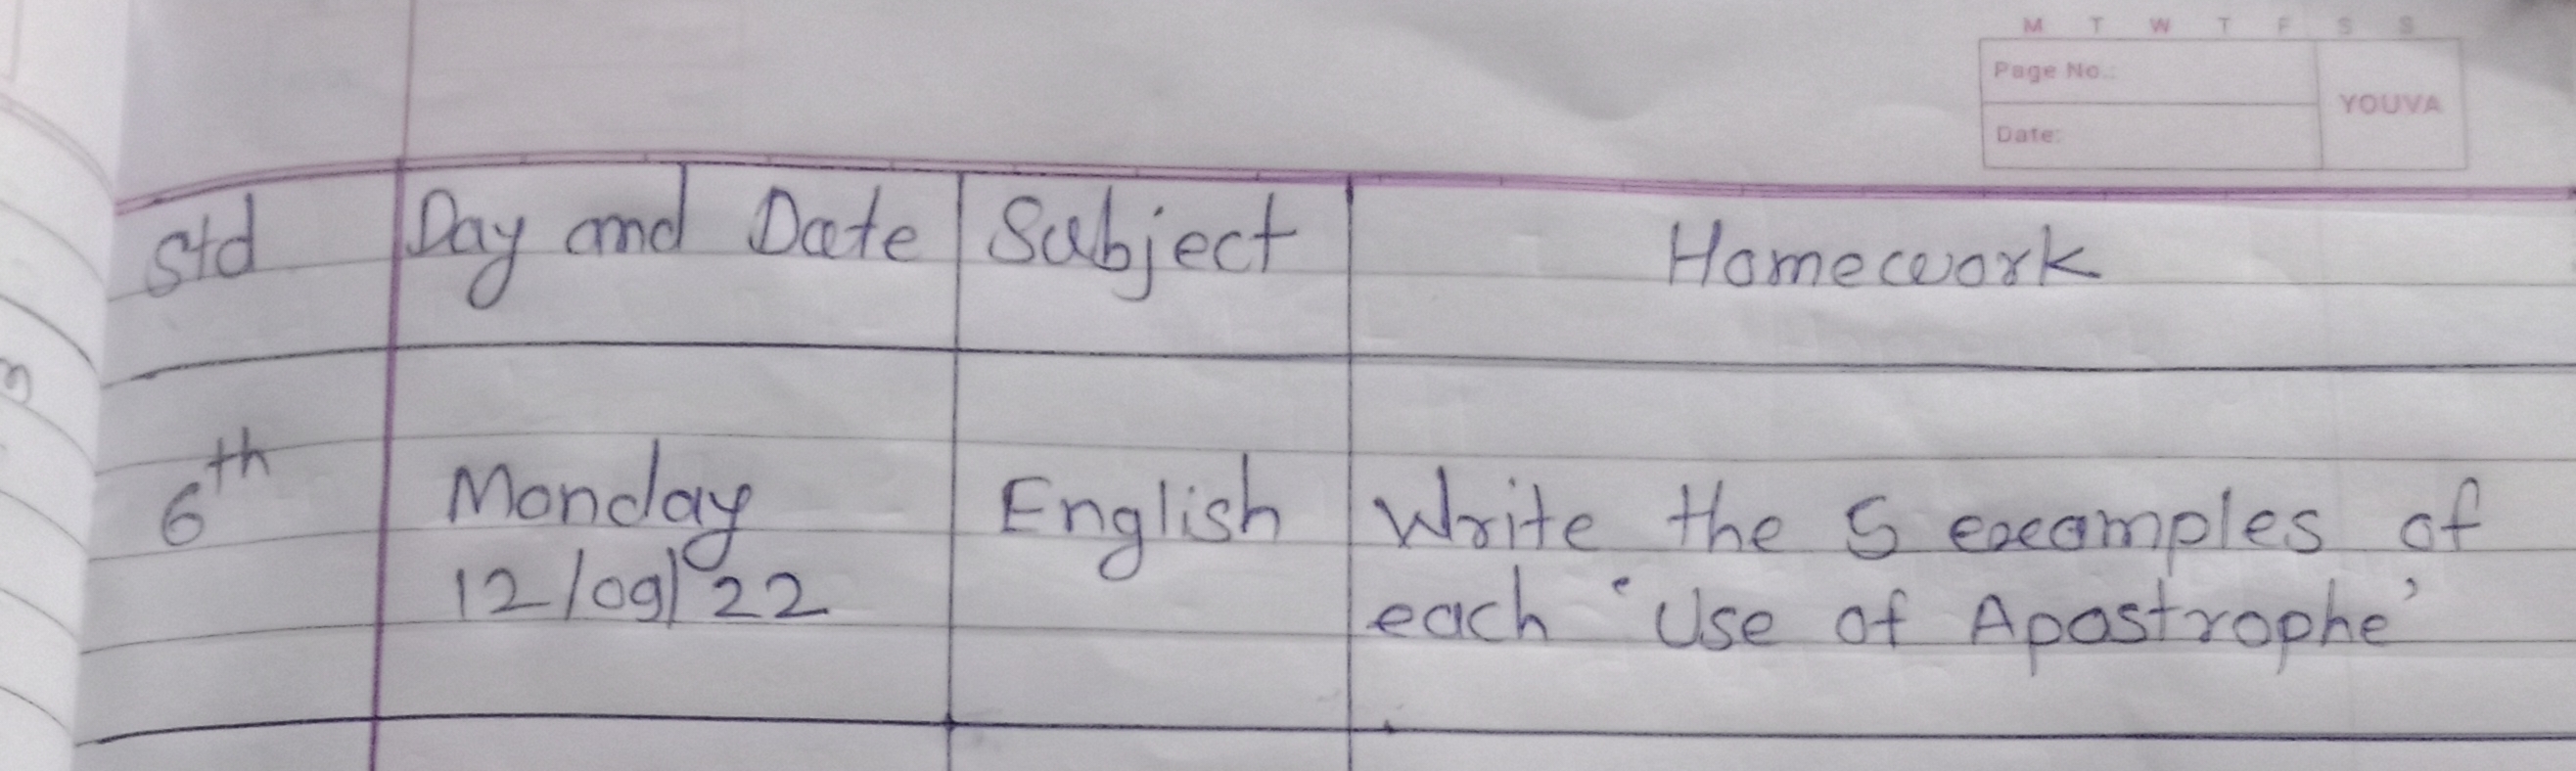 M T W T F S S
Page No.:
YOUVA
Date:
Std Day and Date Subject Homework
6th Monday English Write the 5 examples of
12/09/22 each ‘Use of Apostrophe’